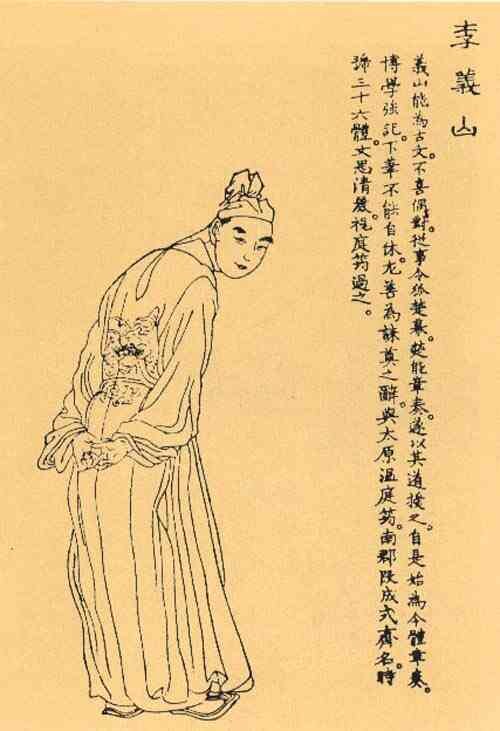 李義山
義山能為古文。不喜偶對。從事令狐楚幕。楚能章奏。遂以其道授之。自是始為今體章奏。
博學強記。下筆不能自休。尤善為誄奠之辭。與太原温庭筠。南郡段成式齊名。時
號三十六體。文思清麗。視庭筠過之。